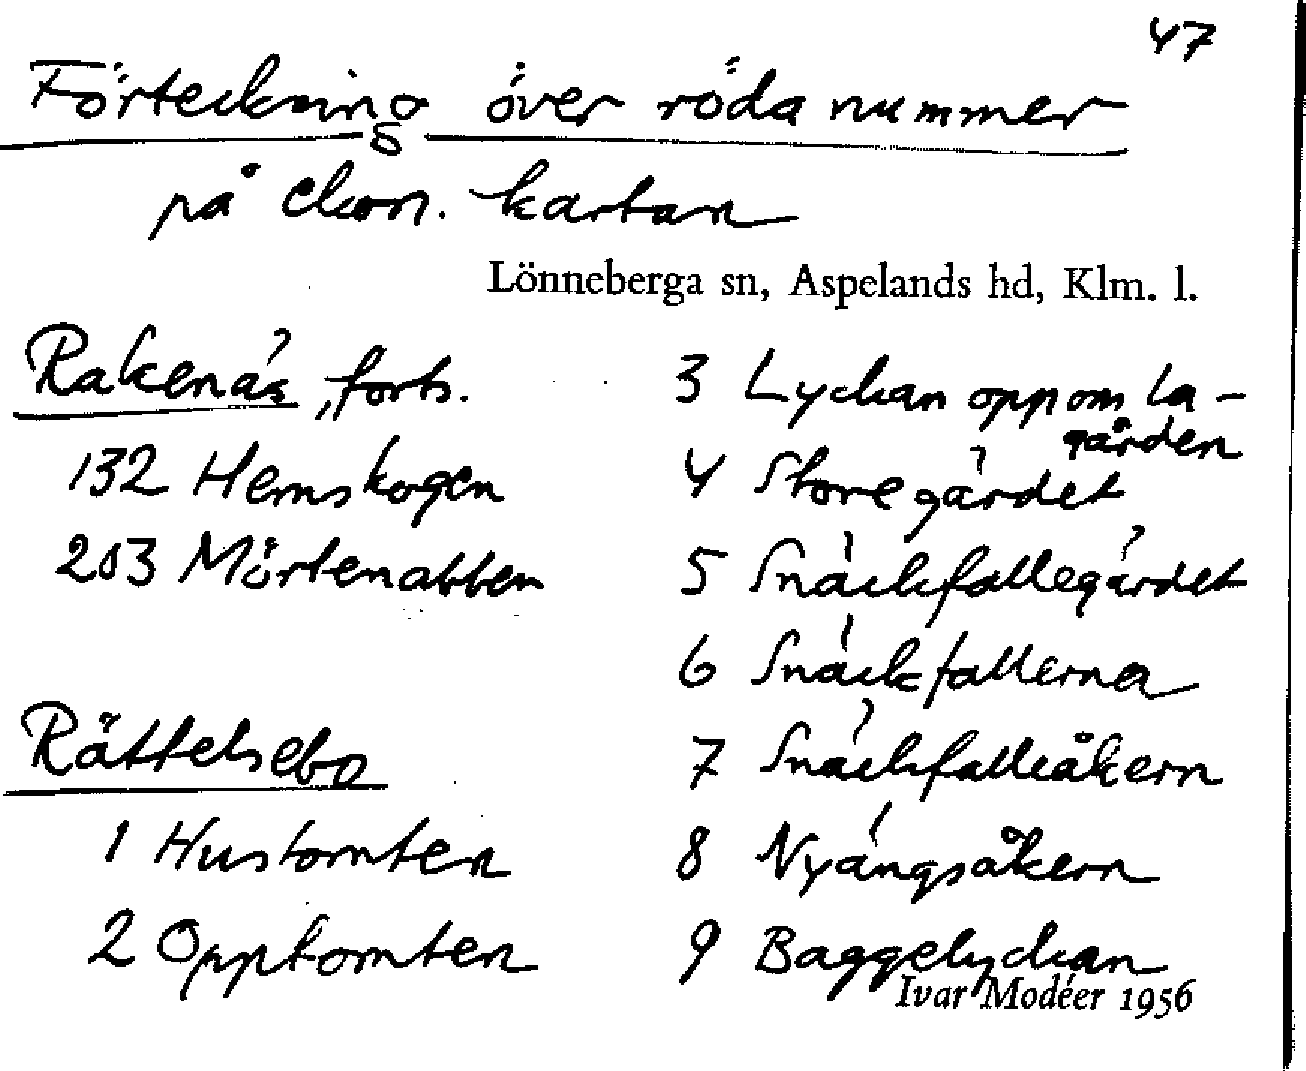 47
Förteckning över röda nummer
på ekon. kartan
Lönneberga sn, Aspelands hd, Klm. l.
Rakenäs, forts.
132 Hemskogen
203 Mörtenabben
Rättelsebo
1 Hustomten
2 Opptomten
3 Lyckan oppom la-
gården
4 Storegärdet
5 Snäckfallegärdet
6 Snäckfallerna
7 Snäckfalleåkern
8 Nyängsåkern
9 Baggelyckan
Ivar Modéer 1956